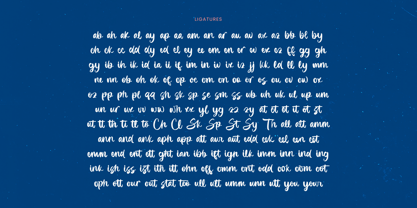 LIGATURES
ab ah ak al ay ap aa am an ar au av az bb bl by
ch ck cc dd dy ed el ey ee em en er ev ex ez ff gg gh
gy ib ih ik id ia ii if im in iv ix iz jj kk ld ll ly mm
ne nn ob oh ok of op oe om on oo or os ou ov ow ox
oz pp ph pl qq sh sk sp se sm ss ub uh uk ul up um
un ur ux vv ww wh xx yl yg zz zy at et it ot st
ut tt th ti tl to Ch Cl Sk Sp St Sy Th all att amm
ann and ank aph app att aur aut edd eek eel een eet
emm end ent ett ght ian ibb ift ign ilk imm inn ind ing
ink ish iss ist ith itt ohn off omm ont odd ook oom oot
oph ott our out stat too ull ult umm unn utt you your